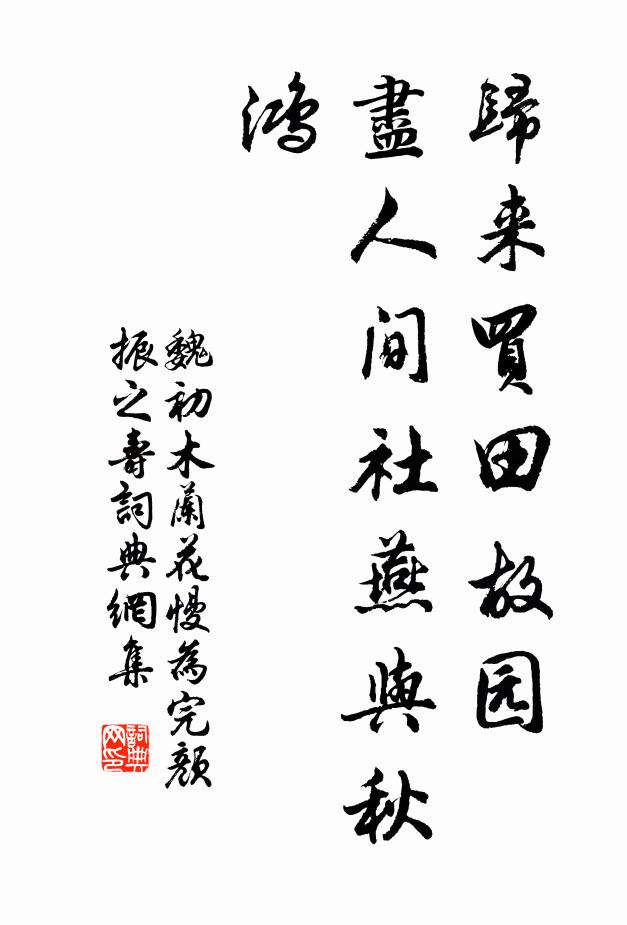 歸来買田故园
盡人间社燕與秋
鴻
魏初木蘭花慢為完顏
振之壽詞典網集
詞典
网印